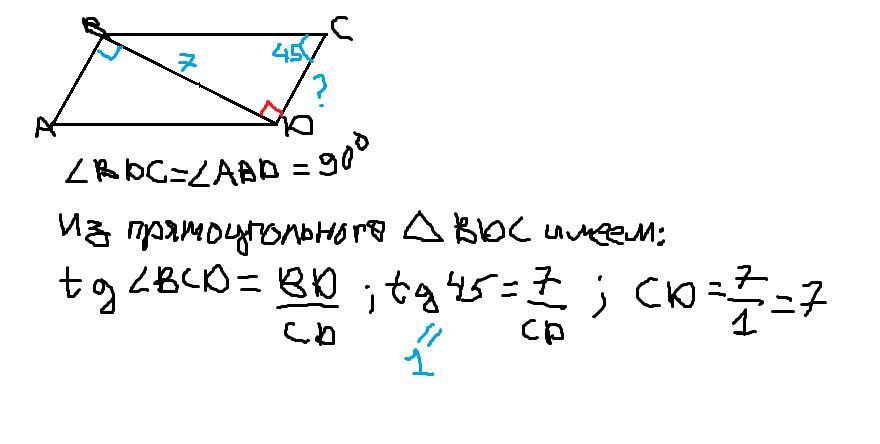 B C
7 45
?
A D
∠BDC=∠ABD=90⁰
Из прямоугольного △ BDC имеем:
tg∠BCD = BD/CD ; tg 45 = 7/CD ; CD = 7/1 = 7
1